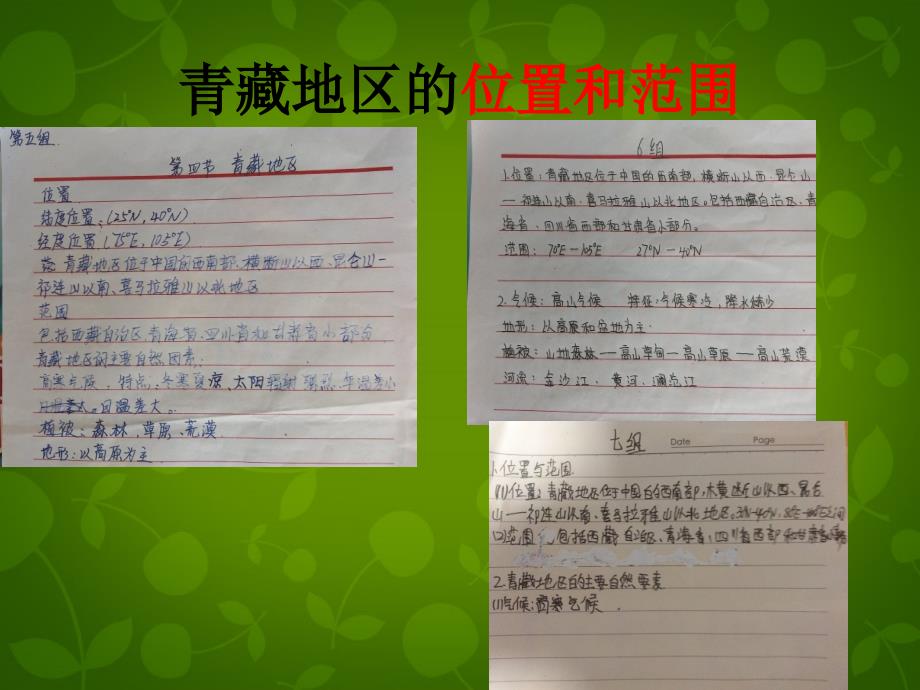 青藏地区的位置和范围
第五组
第四节 青藏地区
位置
纬度位置:(25°N,40°N)
经度位置(75°E,105°E)
青藏地区位于中国的西南部、横断山以西、昆仑山一
祁连山以南、喜马拉雅山以北地区
范围
包括西藏自治区青海省、四川省和甘肃省小部分
青藏地区的主要自然因素:
高寒气候,特点:冬寒夏凉,太阳辐射强烈、年温差小
日温差大。
植被:森林,草原、荒漠
地形:以高原为主
6组
1.位置:青藏地区位于中国的西南部,横断山以西.昆仑山
一祁连山以南.喜马拉雅山以北地区。包括西藏自治区、青
海省、四川省西部和甘肃省小部分。
范围:70°E-105°E 27°N-40°N
2.气候:高山气候 特征:气候寒冷,降水稀少
地形:以高原和盆地为主.
植被:山地森林—高山草甸—高山草原—高山荒漠
河流:金沙江、黄河、澜沧江
七组
Date
Page
1.位置与范围
(1)位置:青藏地区位于中国的西南部、横断山以西、昆仑
山一祁连山以南、喜马拉雅山以北地区。
(2)范围 包括西藏自治区、青海省、四川省西部和甘肃省
2.青藏地区的主要自然要素
(1)气候:高寒气候.